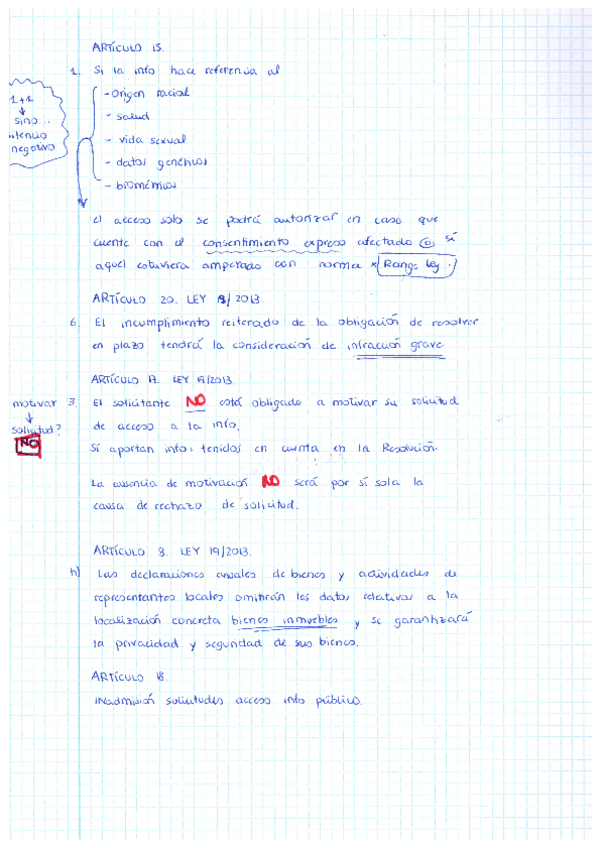 ARTÍCULO 15.
1. Si la info hace referencia al
- origen racial
- salud
- vida sexual
- datos genéticos
- biométricos
1+1
↓
sino...
silencio
negativo
el acceso solo se podrá autorizar en caso que
cuente con el consentimiento expreso afectado o si
aquel estuviera amparado con norma x Rango Ley.
ARTÍCULO 20. LEY 19/2013.
6. El incumplimiento reiterado de la obligación de resolver
en plazo tendrá la consideración de infracción grave
ARTÍCULO 17. LEY 19/2013
3. El solicitante NO está obligado a motivar su solicitud
de acceso a la info.
motivar
↓
solicitud?
NO
Si aportan info: tenidos en cuenta en la Resolución.
La ausencia de motivación NO será por si sola la
causa de rechazo de solicitud.
ARTÍCULO 8. LEY 19/2013.
h) Las declaraciones anuales de bienes y actividades de
representantes locales omitirán los datos relativos a la
localización concreta bienes inmuebles y se garantizará
la privacidad y seguridad de sus bienes.
ARTÍCULO 18.
INadmisión solicitudes acceso info público.